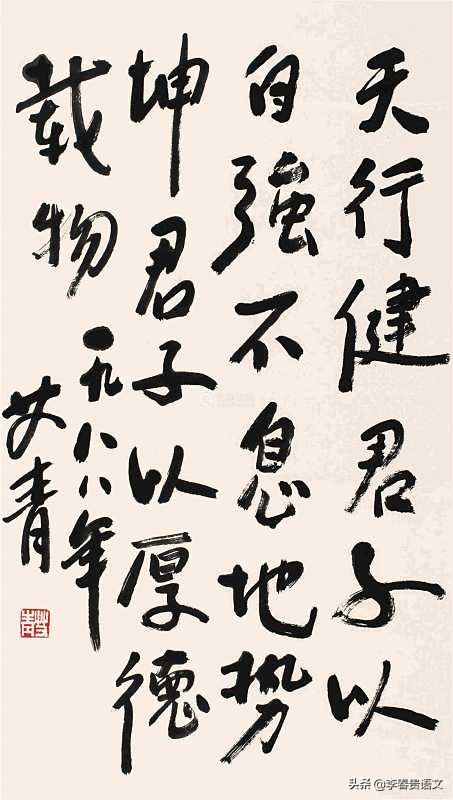 天行健君子以
自强不息地势
坤君子以厚德
载物
一九八八年
艾青
头条@李春贵语文